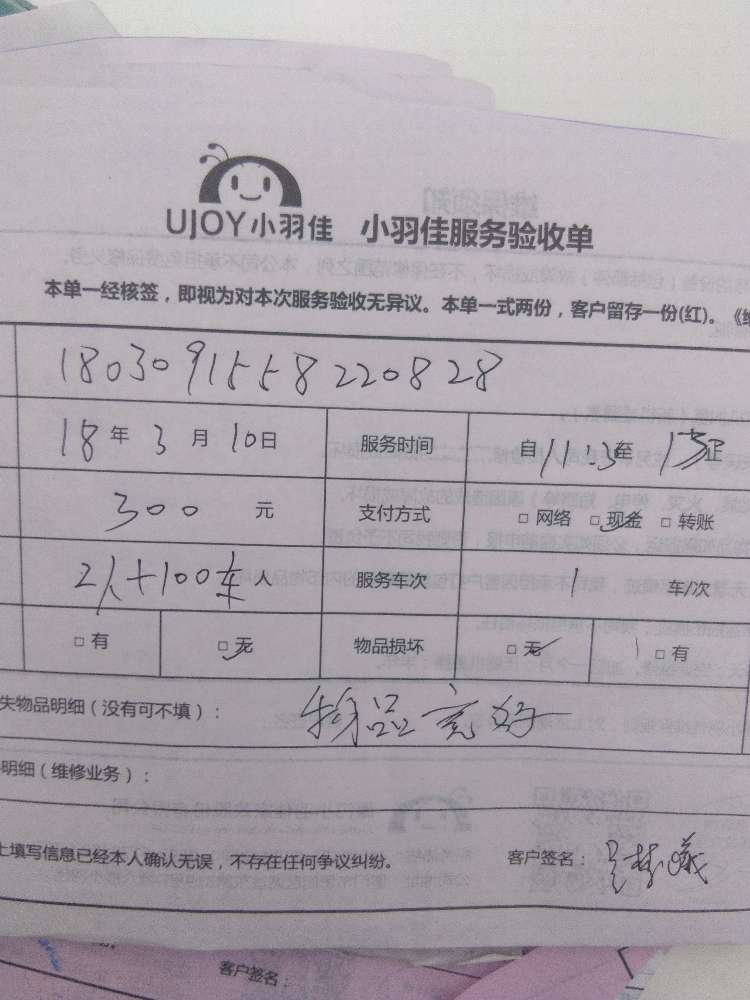 UJOY小羽佳 小羽佳服务验收单
本单一经核签，即视为对本次服务验收无异议。本单一式两份，客户留存一份(红)。
1803091558220828
18年3月10日 服务时间 自11:23至
300元 支付方式 □网络 □现金 □转账
2人+100车人 服务车次 1车/次
□有 □无 物品损坏 □无 □有
失物品明细（没有可不填）： 物品完好
明细（维修业务）：
上填写信息已经本人确认无误，不存在任何争议纠纷。 客户签名：
客户签名：